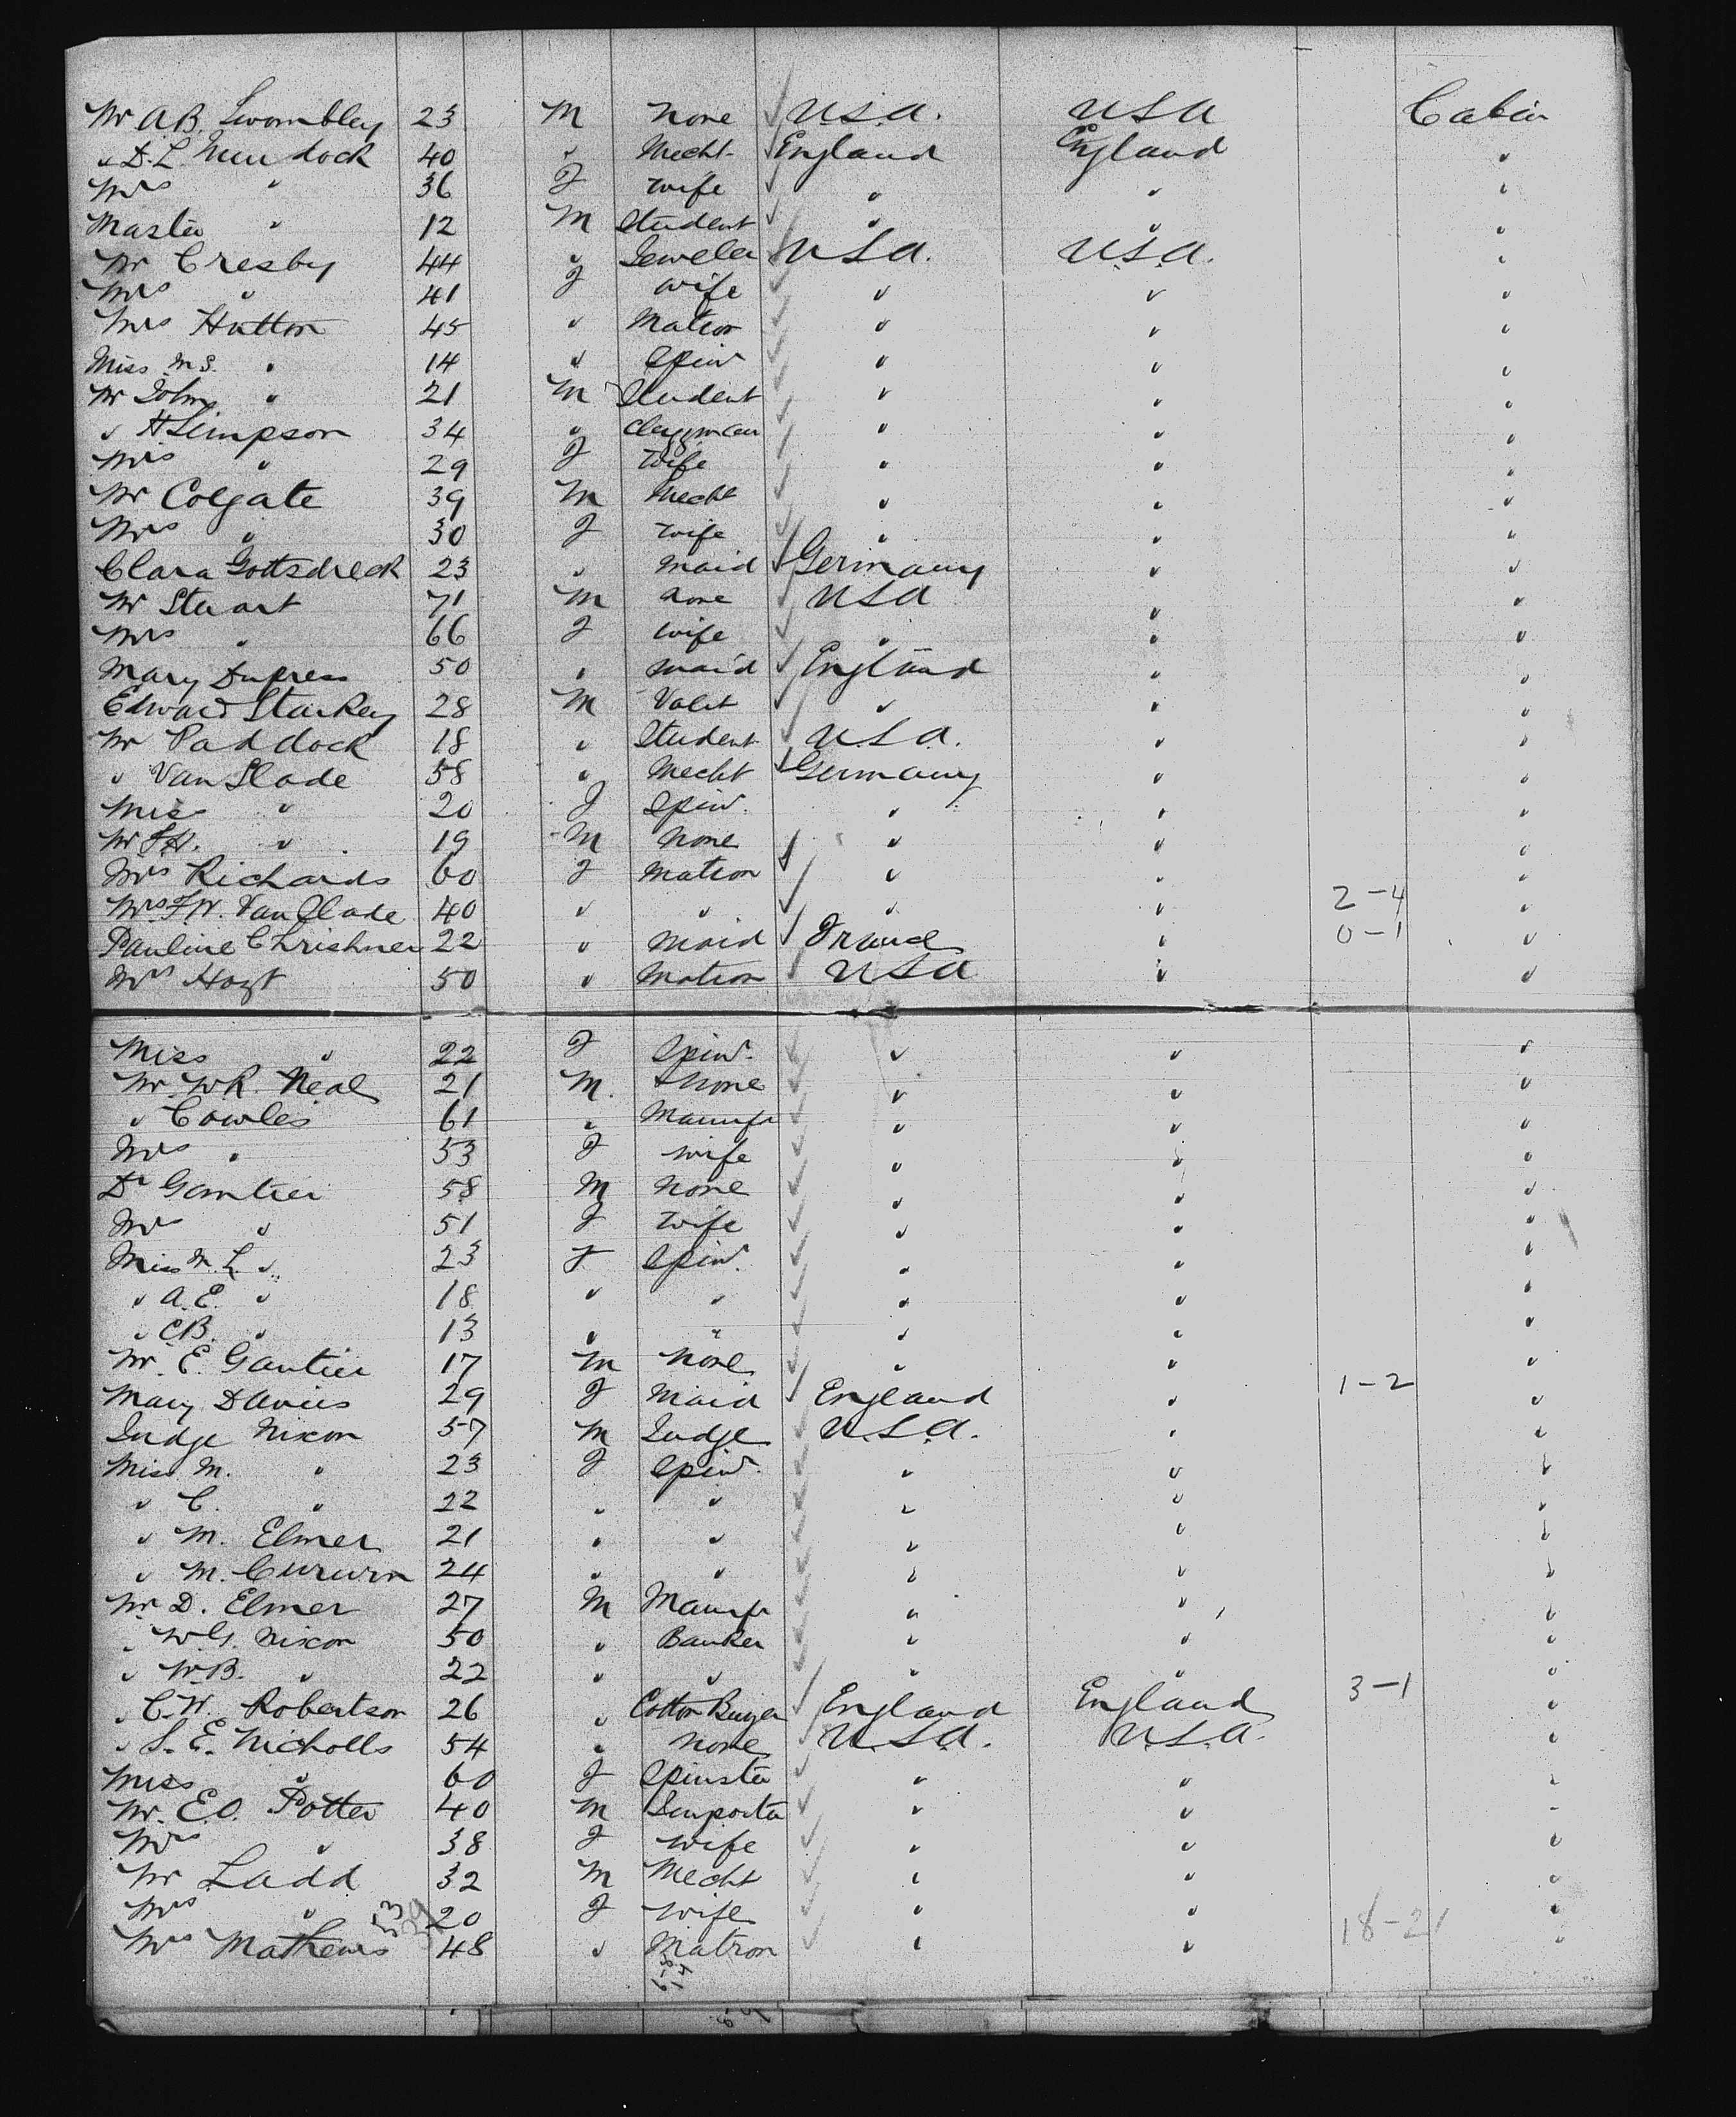 Mr A.B. Twombley 23 M None U.S.A. USA Cabin
" D.L. Murdock 40 " Mecht. England England "
Mrs " 36 F wife " " "
Master " 12 M Student " " "
Mr Cresby 44 " Jeweler USA. USA. "
Mrs " 41 F wife " " "
Mrs Hutton 45 " Matron " " "
Miss M.S. " 14 " Spin " " "
Mr John " 21 M Student " " "
" H Simpson 34 " Clergman " " "
Mrs " 29 F Wife " " "
Mr Colgate 39 M Mecht " " "
Mrs " 30 F wife " " "
Clara Gottsdreck 23 " Maid Germany " "
Mr Stuart 71 M None USA " "
Mrs " 66 F wife " " "
Mary Dupress 50 " maid England " "
Edward Starkey 28 M Valet " " "
Mr Paddock 18 " Student U.S.A. " "
" Van Slade 58 " Mecht Germany " "
Miss " 20 F Spin. " " "
Mr F.H. " 19 M None " " "
Mrs Richards 60 F Matron " " "
Mrs F.W. Van Slade 40 " " " " 2-4 "
Pauline Chrishner 22 " Maid France " 0-1 "
Mrs Hoyt 50 " Matron USA " "
Miss " 22 F Spin. " " "
Mr W.R. Neal 21 M. None " " "
" Cowles 61 " Manufr " " "
Mrs " 53 F wife " " "
Dr Gautier 58 M None " " "
Mrs " 51 F Wife " " "
Miss M.L. " 23 F Spin. " " "
" A.E. " 18 " " " " "
" C.B. " 13 " " " " "
Mr. E. Gautier 17 M None " " "
Mary Davies 29 F Maid England " 1-2 "
Judge Nixon 57 M Judge U.S.A. " "
Miss M. " 23 F Spin. " " "
" C. " 22 " " " " "
" M. Elmer 21 " " " " "
" M. Curwin 24 " " " " "
Mr D. Elmer 27 M Manufr " " "
" W.G. Nixon 50 " Banker " " "
" W.B. " 22 " " " " "
" C.W. Robertson 26 " Cotton Buyer England England 3-1 "
" S.E. Nicholls 54 " None U.S.A. U.S.A. "
Miss " 60 F Spinster " " "
Mr. E.O. Potter 40 M Importer " " "
Mrs " 38 F wife " " "
Mr Ladd 32 M Mecht " " "
Mrs " 20 F wife " " "
Mrs Mathews 53 48 " Matron " " 18-21 "